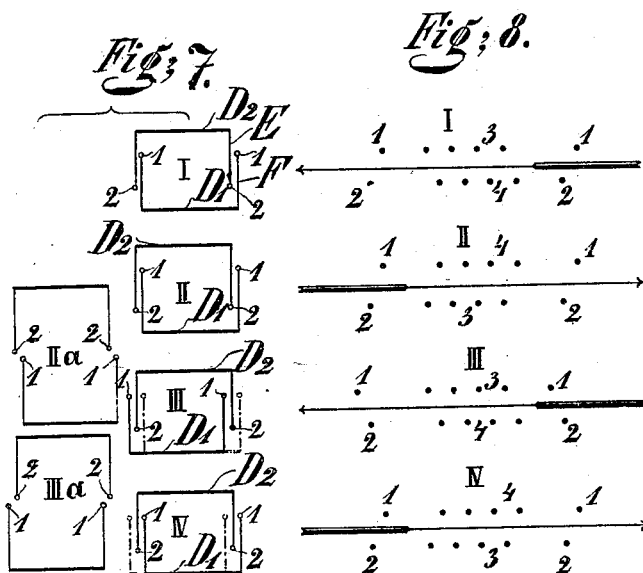 Fig; 7.
D2 E
1 I 1 F
2 D1 2
D2
1 II 1
2 D1 2
2 IIa 2
1 1
D2
1 III 1
2 D1 2
2 IIIa 2
1 1
D2
1 IV 1
2 D1
2
Fig; 8.
I
1 3 1
2 4 2
II
1 4 1
2 3 2
III
1 3 1
2 4 2
IV
1 4 1
2 3 2